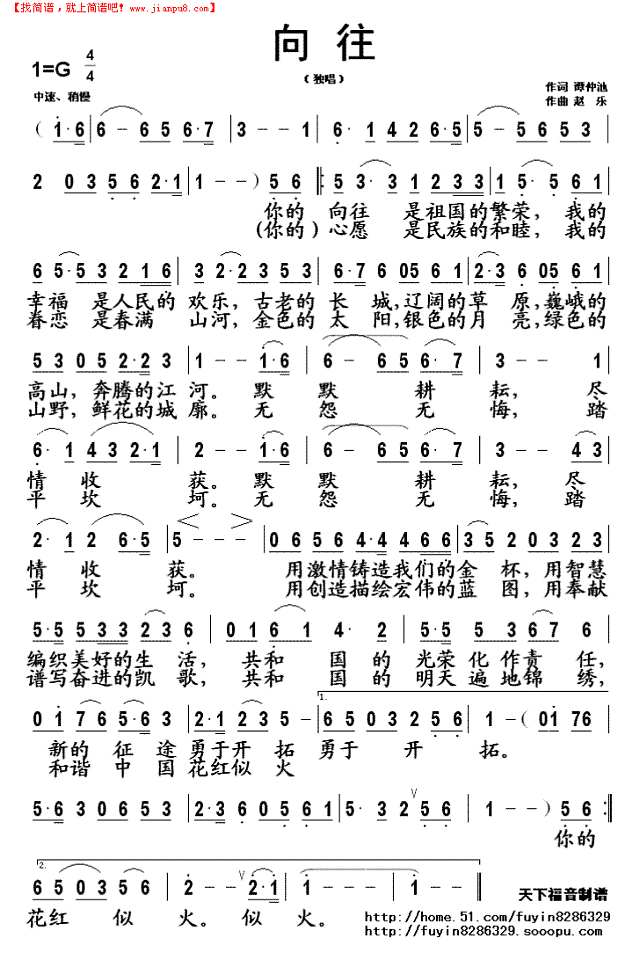 【找简谱，就上简谱吧！www.jianpu8.com】
向往
（独唱）
1=G 4/4
中速、稍慢
作词 谭仲池
作曲 赵 乐
( 1·6 | 6 - 6 5 6·7 | 3 - - 1 | 6· 1 4 2 6·5 | 5 - 5 6 5 3 |
2 0 3 5 6 2·1 | 1 - - ) 5 6 |: 5 3· 3 1 2 3 3 | 1 5· 5 6 1 |
你的 向往 是祖国的繁荣，我的
(你的)心愿 是民族的和睦，我的
6 5·5 3 2 1 6 | 3· 2 0 2 3 5 | 6·7 6 05 6 1 | 2·3 6 05 6 1 |
幸福 是人民的 欢乐，古老的 长 城，辽阔的草 原，巍峨的
眷恋 是春满 山河，金色的 太 阳，银色的月 亮，绿色的
5 3 0 5 2·2 3 | 1 - - 1·6 | 6 - 6 5 6·7 | 3 - - 1 |
高山，奔腾的江 河。默 默 耕 耘，尽
山野，鲜花的城 廓。无 怨 无 悔，踏
6· 1 4 3 2·1 | 2 - - 1·6 | 6 - 6 5 6·7 | 3 - - 4 3 |
情 收 获。默默 耕 耘，尽
平 坎 坷。无 怨 无 悔，踏
2· 1 2 6 5 | 5 - - | 0 6 5 6 4·4 4 6 6 | 3 5 2 0 3 2 3 |
情 收 获。 用激情铸造我们的金 杯，用智慧
平 坎 坷。 用创造描绘宏伟的蓝 图，用奉献
5·5 5 3 3 2 3 6 | 0 1 6 1 4· 2 | 5·5 5 3 6 7 6 |
编织美好的生 活， 共和 国 的 光荣 化 作责 任，
谱写奋进的凯 歌， 共和 国 的 明天 遍 地锦 绣，
1.
0 1 7 6 5·6 3 | 2·1 2 3 5 - | 6 5 0 3 2 5 6 | 1 - ( 01 76 |
新的 征 途 勇于开 拓 勇于 开 拓。
和谐 中 国 花红似 火
5·6 3 0 6 5 3 | 2·3 6 0 5 6 1 | 5· 3 2 5 6 | 1 - - ) 5 6 :|
你的
2.
6 5 0 3 5 6 | 2 - - 2·1 | 1 - - - | 1 - - |
花红 似 火。似 火。
天下福音制谱
http://home.51.com/fuyin8286329
http://fuyin8286329.sooopu.com